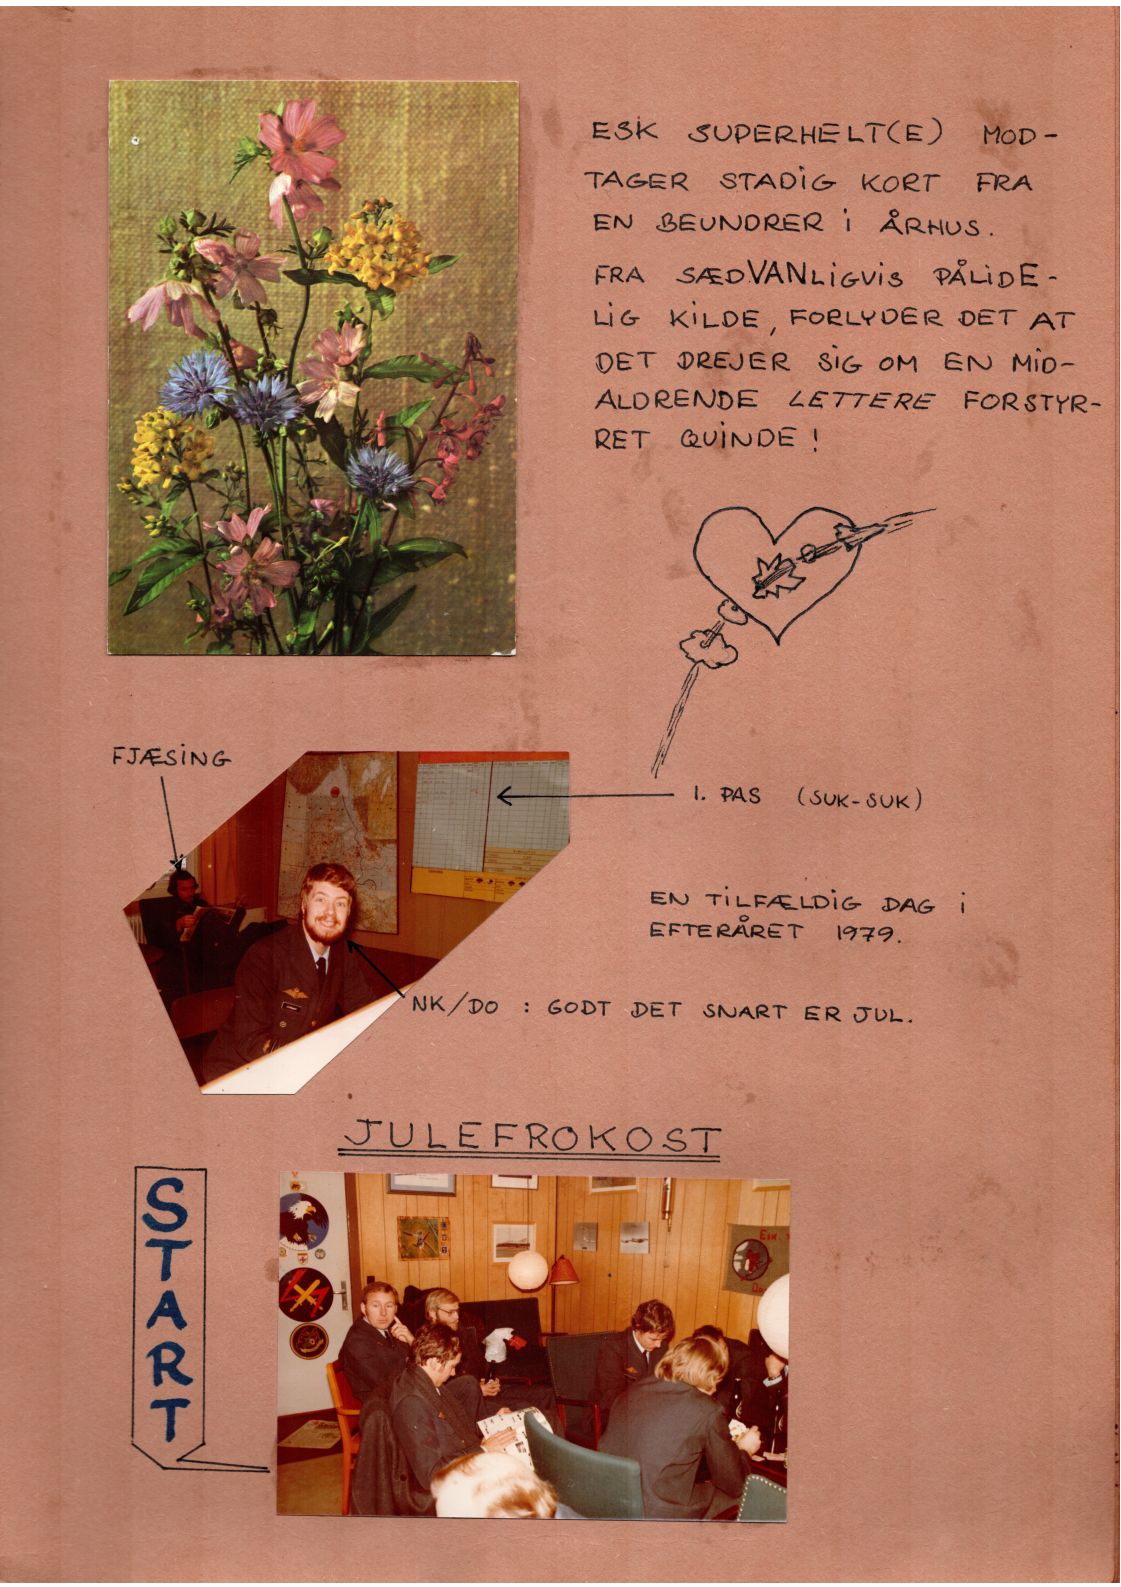 ESK SUPERHELT(E) MOD-
TAGER STADIG KORT FRA
EN BEUNDRER I ÅRHUS.
FRA SÆDVANLIGVIS PÅLIDE-
LIG KILDE, FORLYDER DET AT
DET DREJER SIG OM EN MID-
ALDRENDE LETTERE FORSTYR-
RET QUINDE!
FJÆSING
1. PAS (SUK-SUK)
EN TILFÆLDIG DAG I
EFTERÅRET 1979.
NK/DO : GODT DET SNART ER JUL.
JULEFROKOST
START
ESK